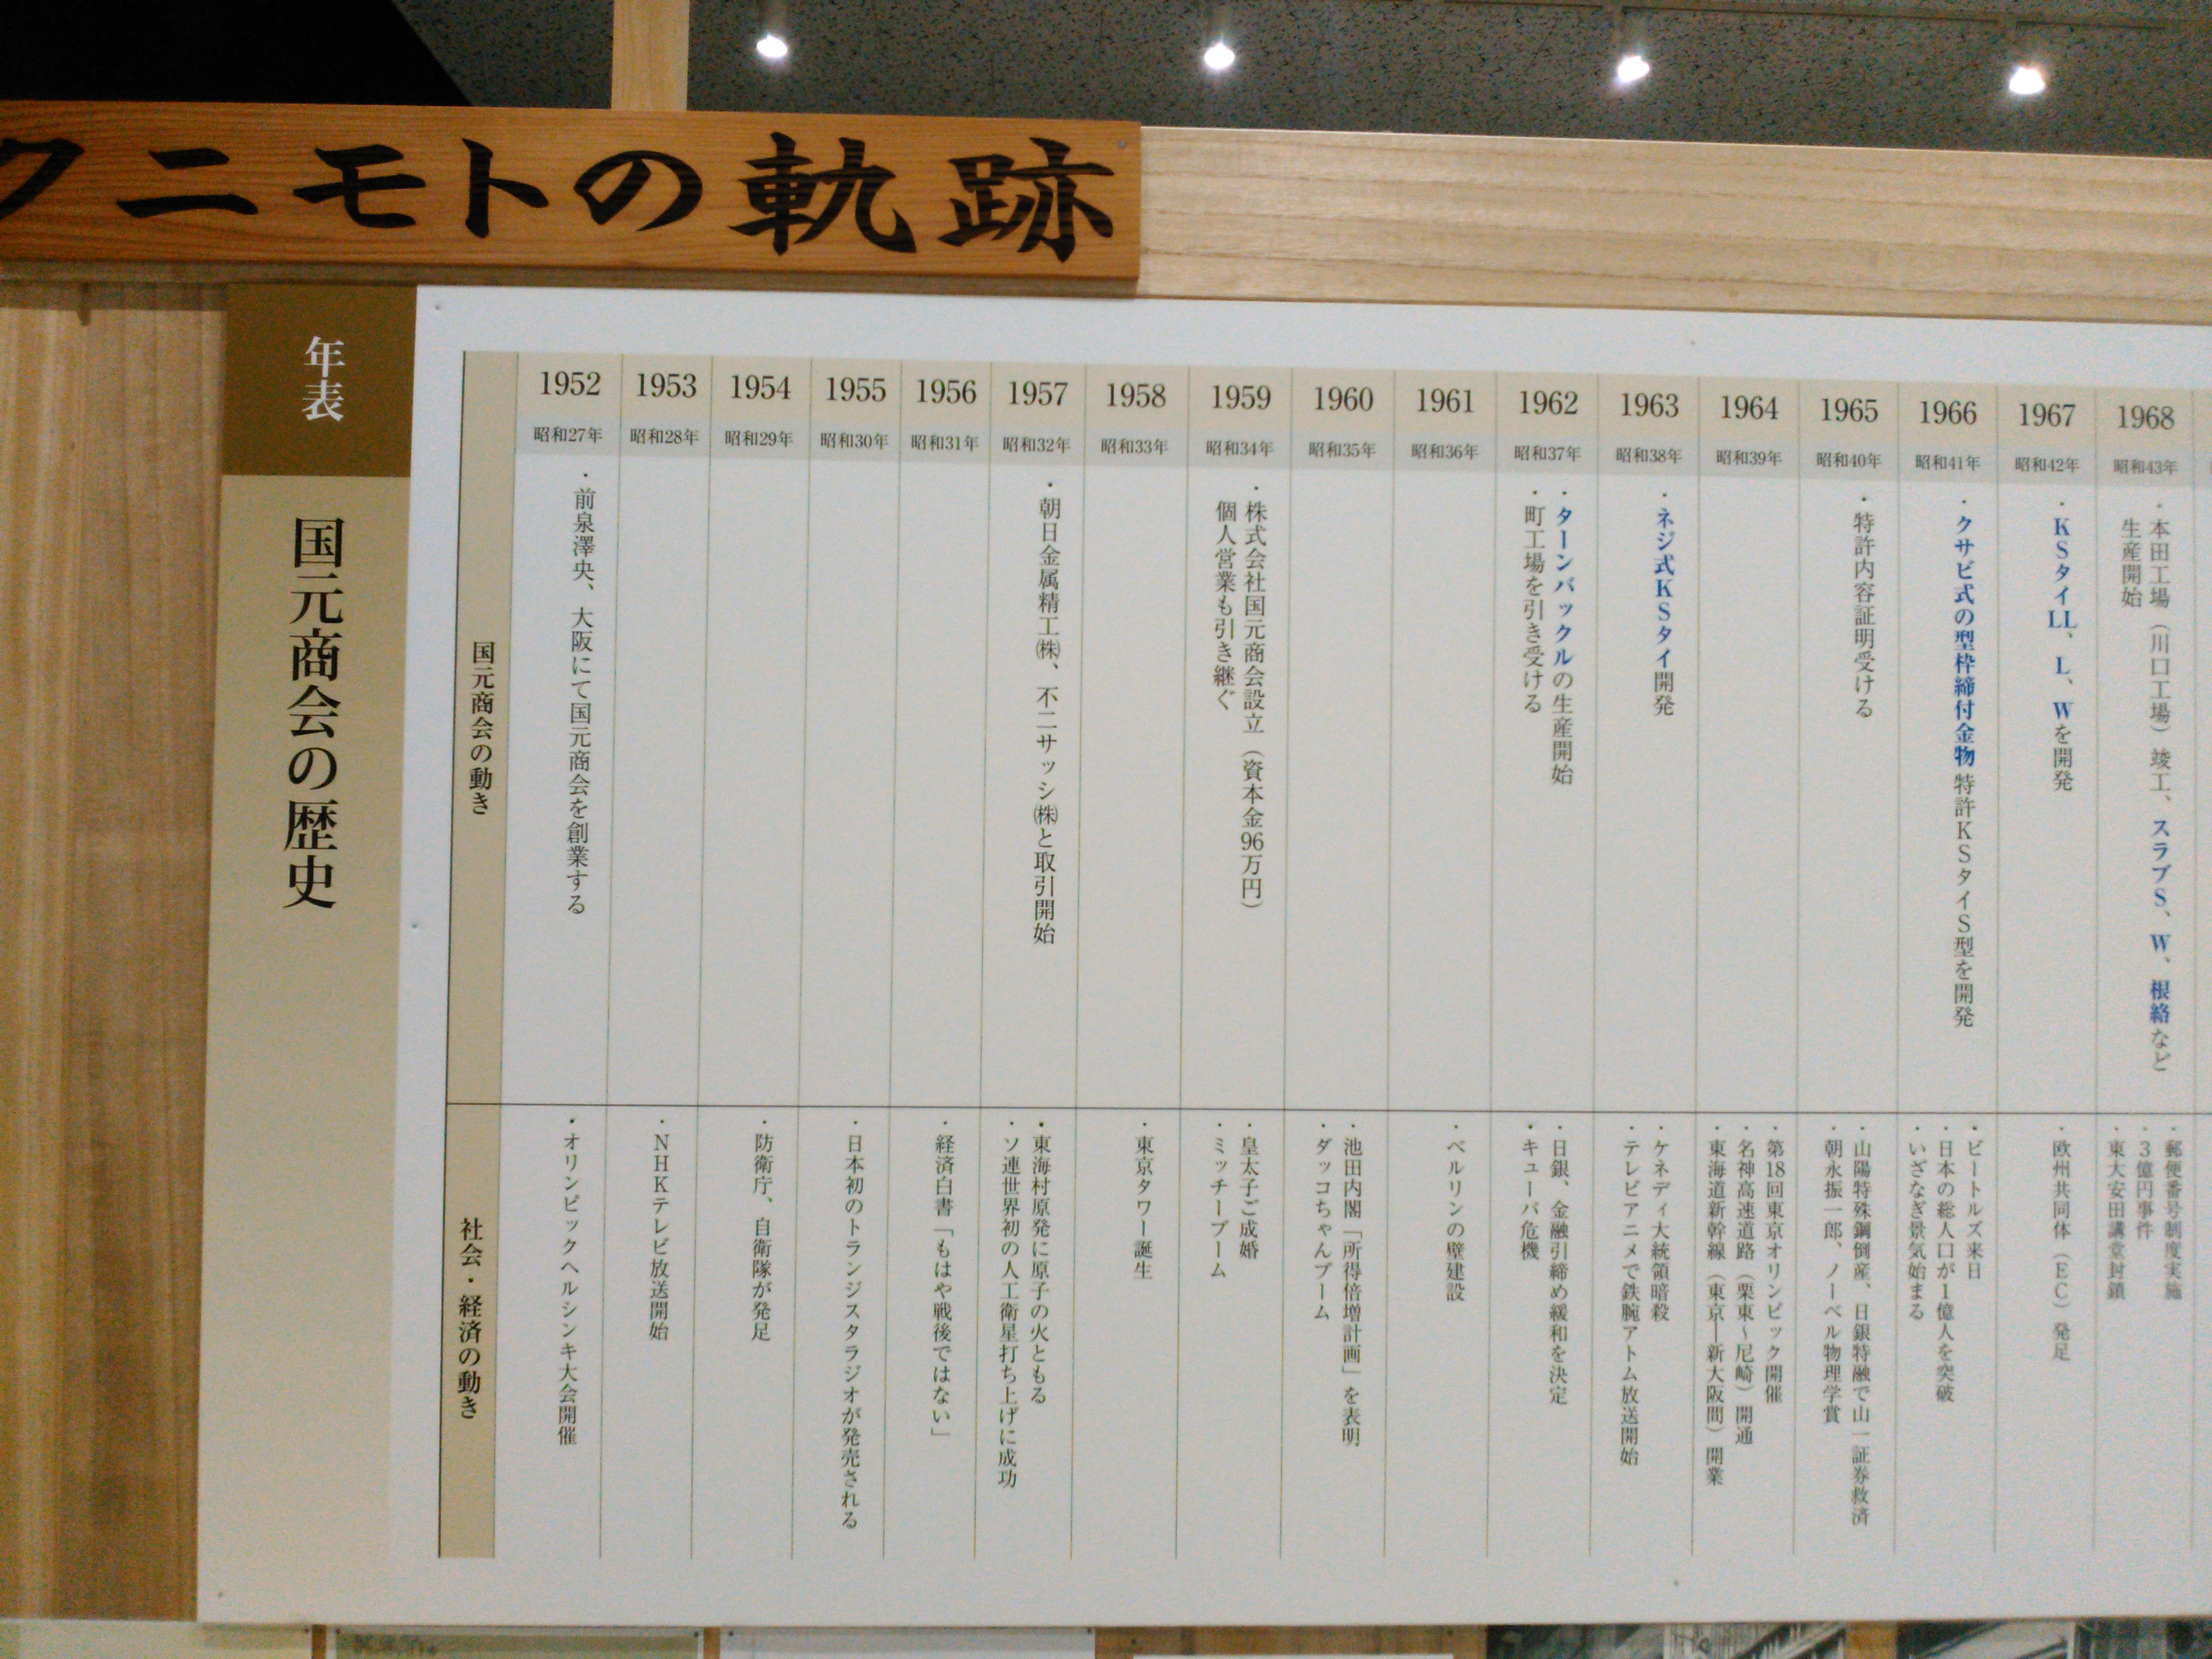 クニモトの軌跡
年表
国元商会の歴史
国元商会の動き
社会・経済の動き
1952
昭和27年
・前泉澤央、大阪にて国元商会を創業する
・オリンピックヘルシンキ大会開催
1953
昭和28年
・NHKテレビ放送開始
1954
昭和29年
・防衛庁、自衛隊が発足
1955
昭和30年
・日本初のトランジスタラジオが発売される
1956
昭和31年
・経済白書「もはや戦後ではない」
1957
昭和32年
・朝日金属精工㈱、不二サッシ㈱と取引開始
・東海村原発に原子の火ともる
・ソ連世界初の人工衛星打ち上げに成功
1958
昭和33年
・東京タワー誕生
1959
昭和34年
・株式会社国元商会設立（資本金96万円）
個人営業も引き継ぐ
・皇太子ご成婚
・ミッチーブーム
1960
昭和35年
・池田内閣「所得倍増計画」を表明
・ダッコちゃんブーム
1961
昭和36年
・ベルリンの壁建設
1962
昭和37年
・ターンバックルの生産開始
・町工場を引き受ける
・日銀、金融引締め緩和を決定
・キューバ危機
1963
昭和38年
・ネジ式KSタイ開発
・ケネディ大統領暗殺
・テレビアニメで鉄腕アトム放送開始
1964
昭和39年
・第18回東京オリンピック開催
・名神高速道路（栗東～尼崎）開通
・東海道新幹線（東京―新大阪間）開業
1965
昭和40年
・特許内容証明受ける
・山陽特殊鋼倒産、日銀特融で山一証券救済
・朝永振一郎、ノーベル物理学賞
1966
昭和41年
・クサビ式の型枠締付金物 特許KSタイS型を開発
・ビートルズ来日
・日本の総人口が1億人を突破
・いざなぎ景気始まる
1967
昭和42年
・KSタイLL、L、Wを開発
・欧州共同体（EC）発足
1968
昭和43年
・本田工場（川口工場）竣工、スラブS、W、根絡など
生産開始
・郵便番号制度実施
・3億円事件
・東大安田講堂封鎖